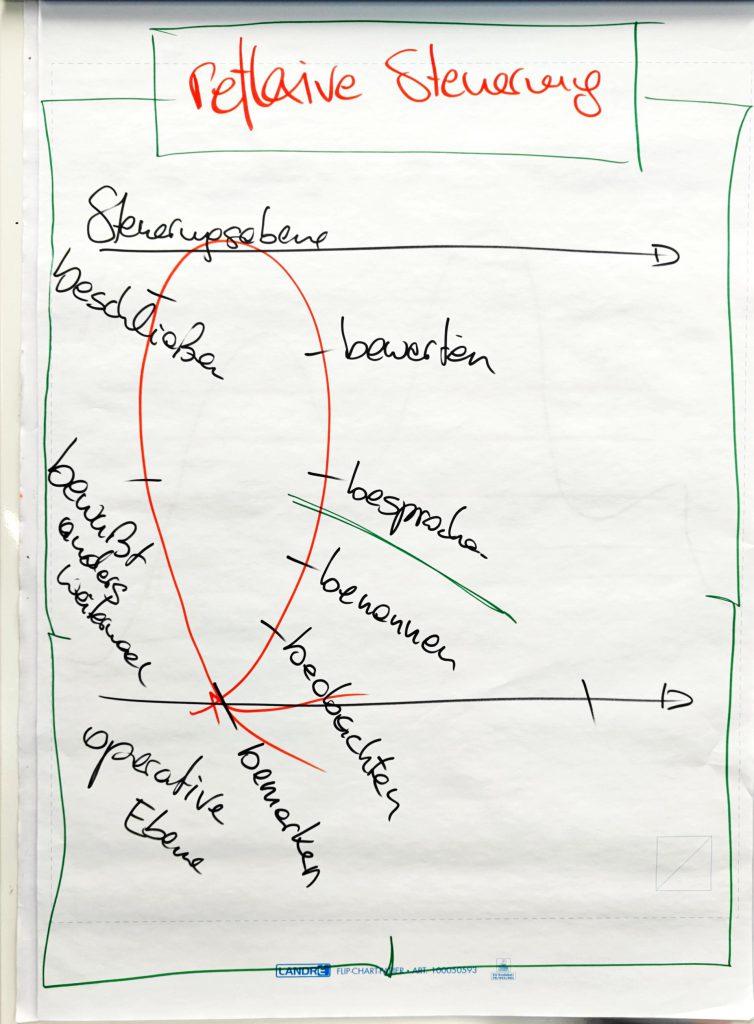 reflexive Steuerung
Steuerungsebene
beschließen
bewerten
besprechen
benennen
beobachten
bemerken
bewußt
anders
operative
Ebene
LANDRÉ FLIP-CHART-PAPIER • ART. 100050593